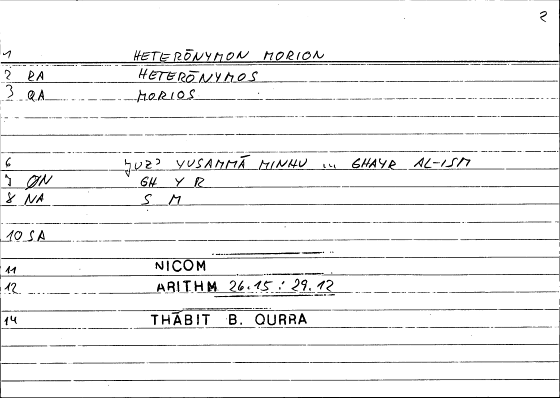 2
1 HETERŌNYMON MORION
2 RA HETERŌNYMOS
3 QA MORIOS
6 ǦUZʾ YUSAMMĀ MINHU ... GHAYR AL-ISM
7 ØN GH Y R
8 NA S M
10 SA
11 NICOM
12 ARITHM 26.15 : 29.12
14 THĀBIT B. QURRA